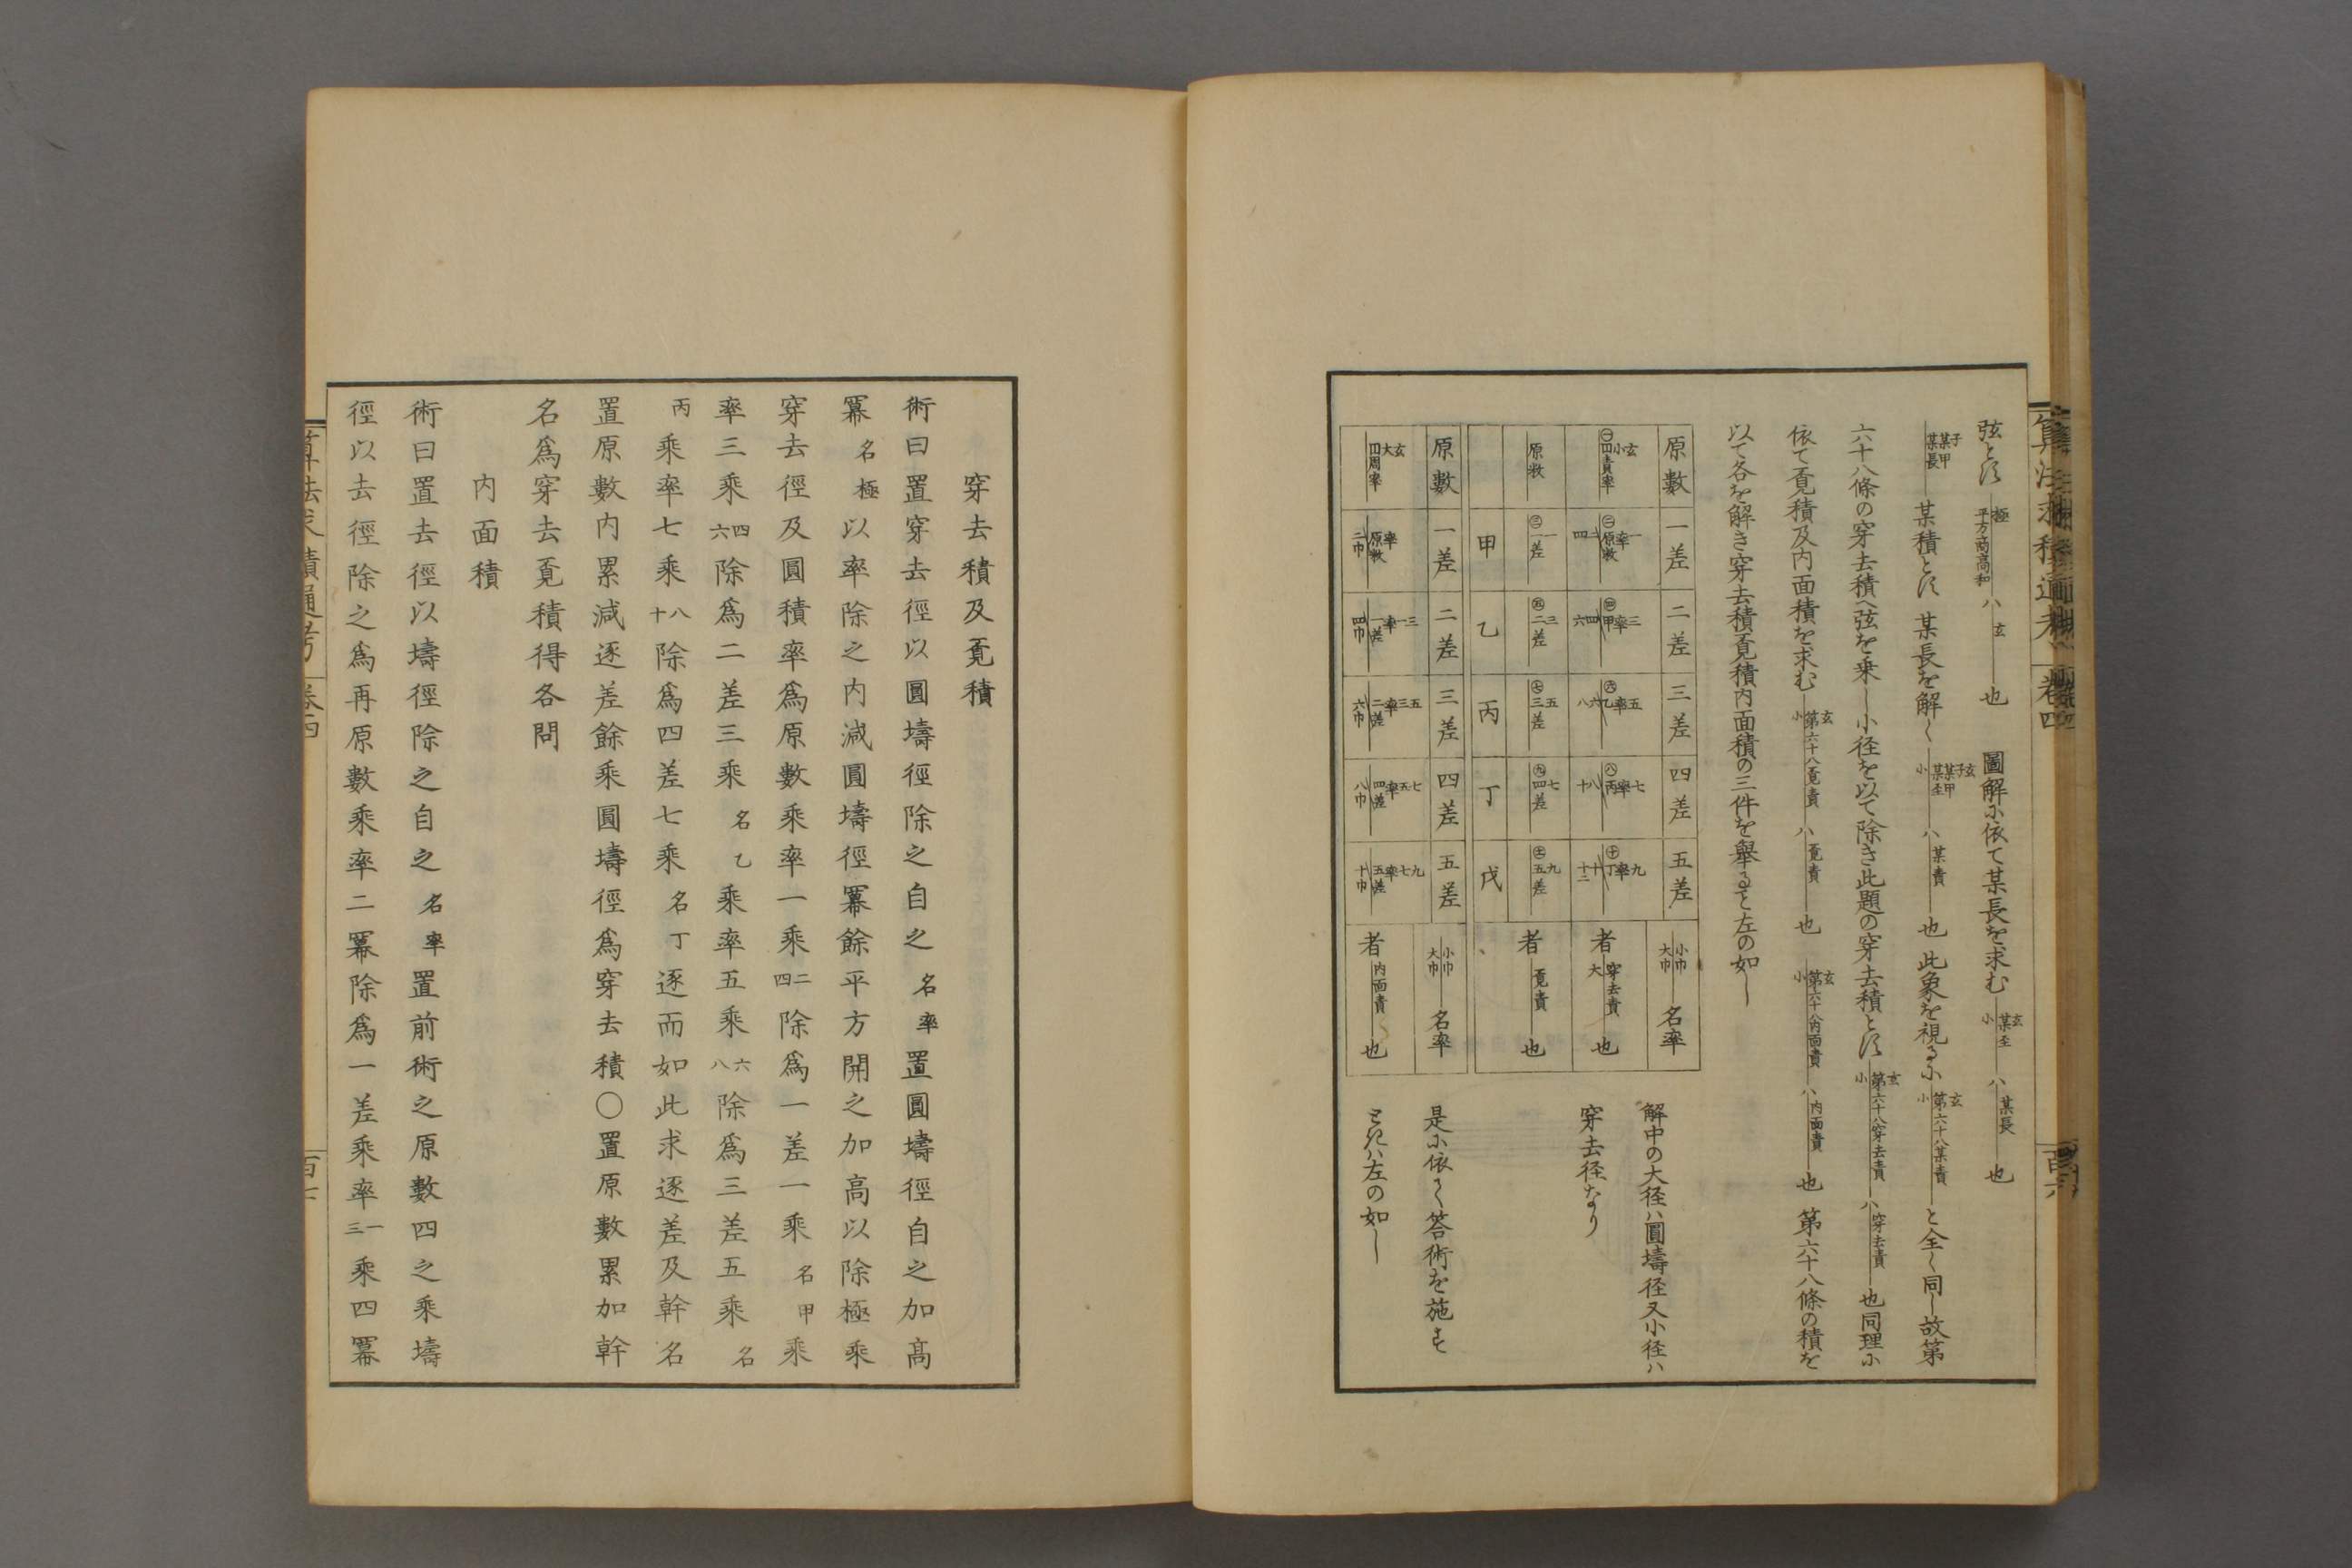 弦とす 極平方商高和 ハ 玄 也 圖解に依て某長を求む 玄某至小 ハ 某長 也
子某甲某長 某積とす 某長を解く 玄子某甲某至小 ハ 某責 也 此象を視るに 玄第六十八某責小 と全く同し故第
六十八條の穿去積へ弦を乗し小径を以て除き此題の穿去積とす 玄第六十八穿去責小 ハ 穿去責 也同理に
依て覔積及内面積を求む 玄第六十八覔責小 ハ 覔責 也 玄第六十八内面責小 ハ 内面責 也 第六十八條の積を
以て各を解き穿去積覔積内面積の三件を舉ると左の如し
原數 一差 二差 三差 四差 五差 小巾 大巾 名率
者 穿去責 大 也
原数 一差 二差 三差 四差 五差 者 覔責 也
甲 乙 丙 丁 戊
原數 一差 二差 三差 四差 五差 小巾 大巾 名率
者 内面責 也
解中の大径ハ圓壔径又小径ハ
穿去径なり
是に依て答術を施す
ときハ左の如し
算法求積通考 卷四 百六
穿去積及覔積
術曰置穿去徑以圓壔徑除之自之名率置圓壔徑自之加高
冪名極以率除之内減圓壔徑冪餘平方開之加高以除極乘
穿去徑及圓積率爲原數乘率一乘二四除爲一差一乘名甲乘
率三乘四六除爲二差三乘名乙乘率五乘六八除爲三差五乘名
丙乘率七乘八十除爲四差七乘名丁逐而如此求逐差及幹名
置原數内累減逐差餘乘圓壔徑爲穿去積〇置原數累加幹
名爲穿去覔積得各問
内面積
術曰置去徑以壔徑除之自之名率置前術之原數四之乘壔
徑以去徑除之爲再原數乘率二冪除爲一差乘率一三乘四冪
算法求積通考 卷四 百七